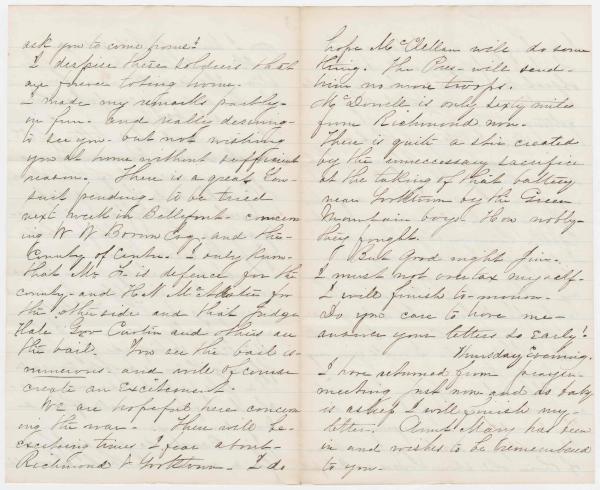 ask you to come home?
I despise these soldiers that
are forever toting home.
I made my remarks partly
in fun. and really desiring
to see you. but not wishing
you at home without sufficient
reason. There is a great law
suit pending. to be tried
next week in Bellefont. concern
ing W W Brown Esq. and the
County of Centre. I only know
that Mr. is defence for the
county and H. N. McAllister for
the other side and that Judge
Hale Gov Curtin and others are
the bail. You see the bail is
numerous. and will of course
create an excitement.
We are hopeful here concern
ing the war. There will be
exciting times I fear about
Richmond & Yorktown. I do
hope McClellan will do some
thing. The Pres. will send
him no more troops.
McDowell is only sixty miles
from Richmond now.
There is quite a stir created
by the unnecessary sacrifice
at the taking of that battery
near Yorktown by the Green
Mountain boys. How nobly
they fought.
But Good night Jim.
I must not overtax myself.
I will finish to-morrow.
Do you care to have me
answer your letters so early?
Thursday Evening.
I have returned from prayer
meeting just now and as baby
is asleep I will finish my
letter. Aunt Mary has been
in and wishes to be remembered
to you.